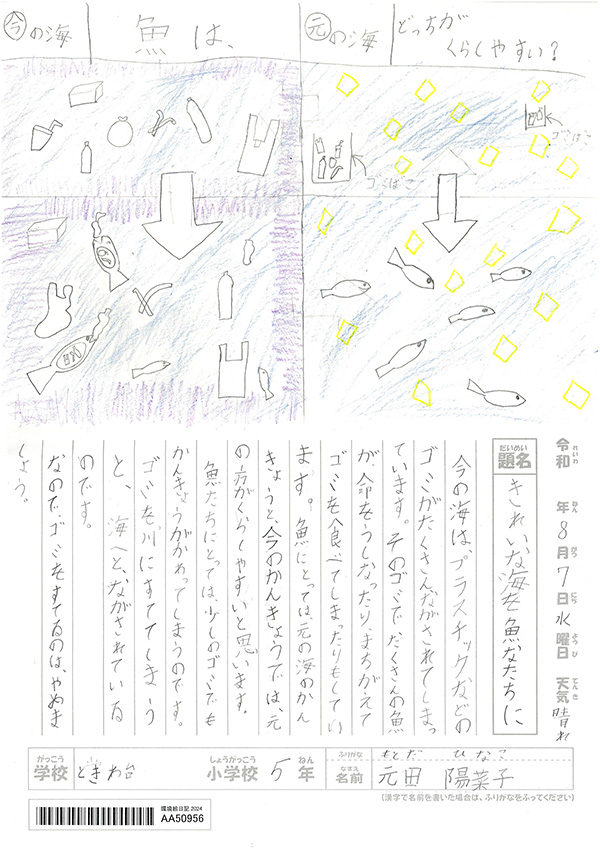 今の海
魚は、
元の海
どっちが
くらしやすい?
ゴミばこ
ゴミばこ
令和 年 8月7日 水曜日 天気 晴れ
れいわ ねん がつ にち ようび てんき
だいめい
題名
きれいな海を魚なたちに
今の海はプラスチックなどの
ゴミがたくさんながされてしまっ
ています。そのゴミでたくさんの魚
が、命をうしなったり、まちがえて
ゴミを食べてしまったりもしてい
ます。魚にとっては、元の海のかん
きょうと、今のかんきょうでは、元
の方がくらしやすいと思います。
魚たちにとっては、少しのゴミでも
かんきょうがかわってしまうのです。
ゴミを川にすててしまう
と、海へと、ながされている
のです。
なので、ゴミをすてるのは、やめま
しょう。
がっこう
学校
ときわ台
しょうがっこう
小学校
5
ねん
年
ふりがな
もとだ ひなこ
なまえ
名前
元田 陽菜子
(漢字で名前を書いた場合は、ふりがなをふってください)
環境絵日記 2024
AA50956